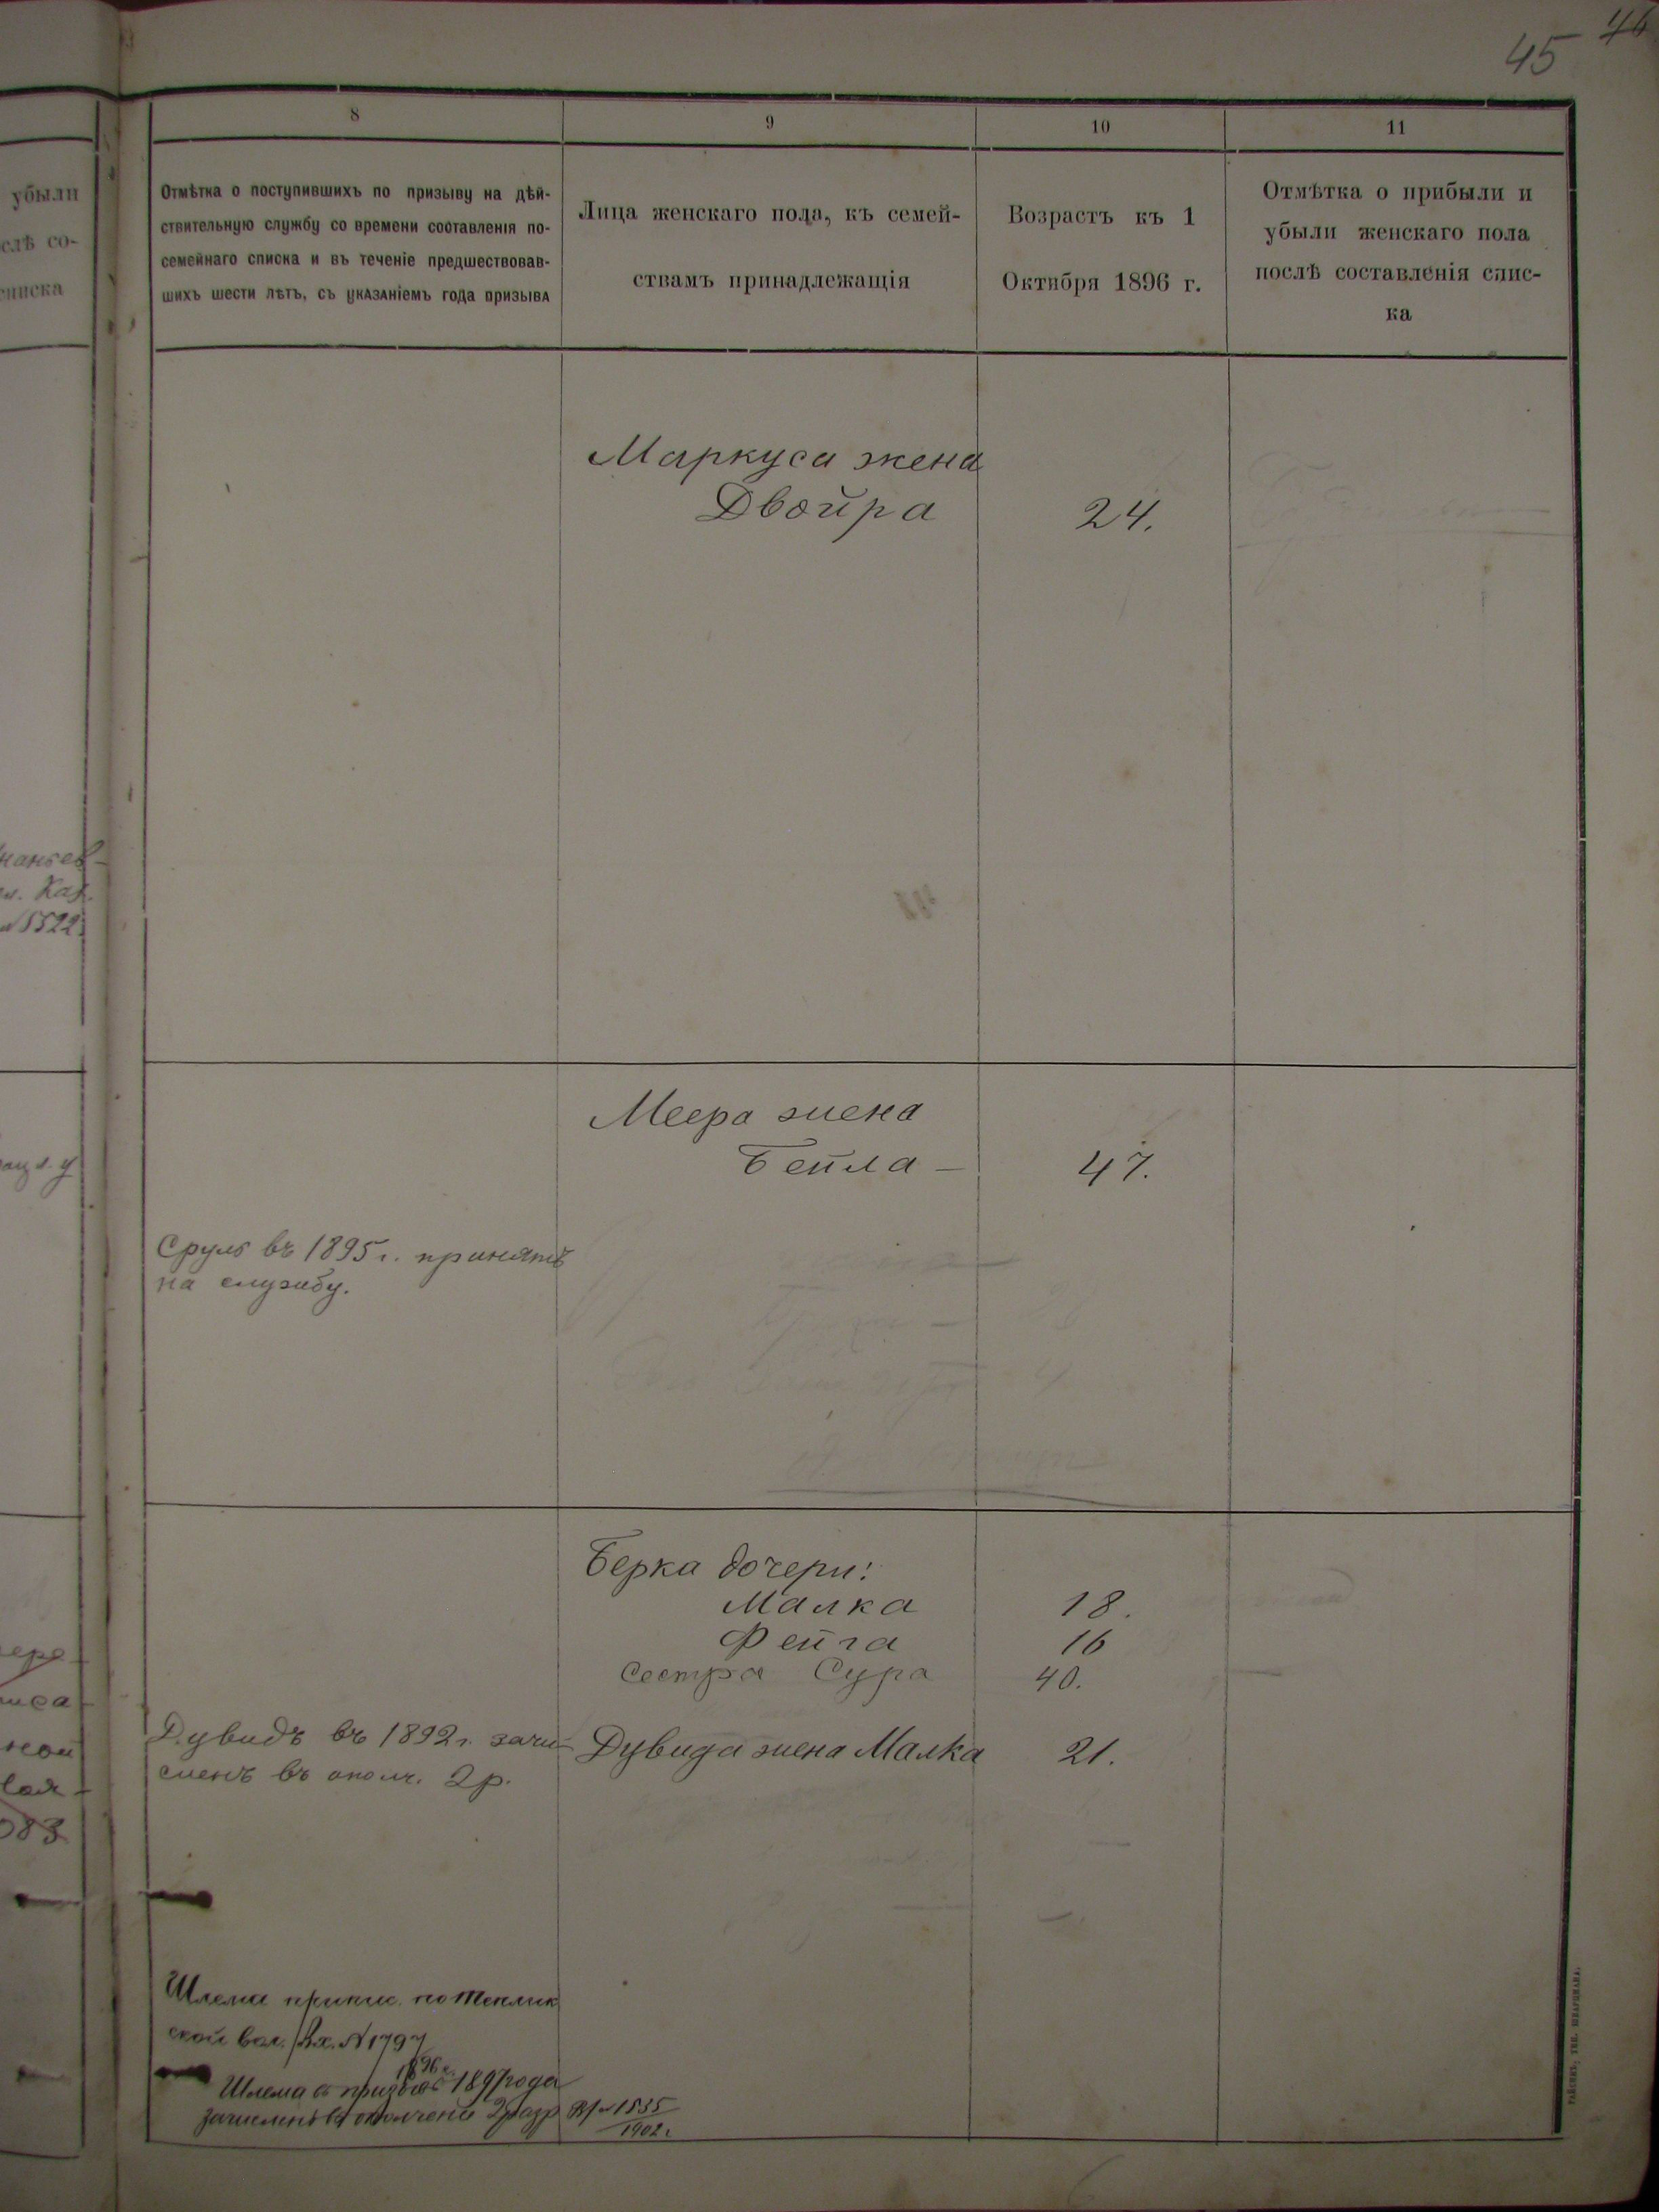 46
45
8
9
10
11
убыли
слѣ со-
списка
Отмѣтка о поступившихъ по призыву на дѣй-
ствительную службу со времени составленія по-
семейнаго списка и въ теченіе предшествовав-
шихъ шести лѣтъ, съ указаніемъ года призыва
Лица женскаго пола, къ семей-
ствамъ принадлежащія
Возрастъ къ 1
Октября 1896 г.
Отмѣтка о прибыли и
убыли женскаго пола
послѣ составленія спис-
ка
Маркуса жена
Двойра
24.
№ 1522
Меера жена
Бейла —
47.
Сруль въ 1895 г. принятъ
на службу.
Берка дочери:
Малка
18.
Фейга
16
сестра Сура
40.
Дувидъ въ 1892 г. зачи-
сленъ въ ополч. 2 р.
Дувида жена Малка
21.
Шлема припис. по Теплик
ской вол. Вх. № 1797
1896 г.
Шлема въ призывъ 1897 года
зачисленъ въ ополченіе 2 разр
№ 1535
1902 г.
ТИП. ШВАРЦМАНА.